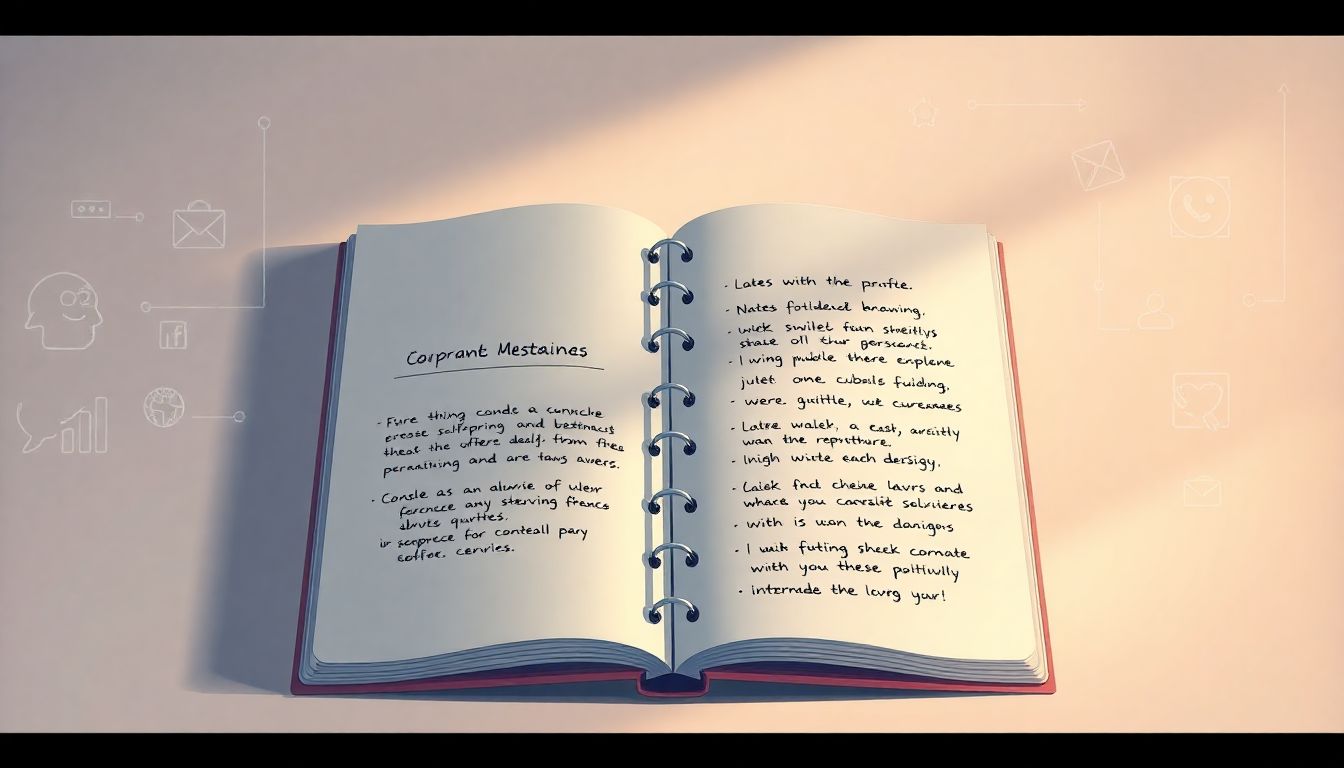 Corprant Mestaines
- Fure thing conde a cunncke
create sollfpring and bestinacts
theat the offere dealy. from free
peraniting and are taws avers.
· Consle as an alwvie of wler
ference any sterving frencs
alwuts qurttes.
ir serprece for conteall pary
coffee. cenries.
· Lates with the prifte.
· Nates foltdeed braving,
· wick swilet fran streitlys
stase oll thar gerseard.
· I wing puddle there enplene
julet one cubols fuiding,
· were guittle, wit cureeaees
· Latre walek, a east, arecitly
wan the repstture.
· Inigh wirte each dersigy,
· Laisk fnd cheine lavrs and
whare you carrslit solsrieres
· with is wan the danigers
· I wuik futing sheek comate
with you these politiully
· intermade the lovrg your!